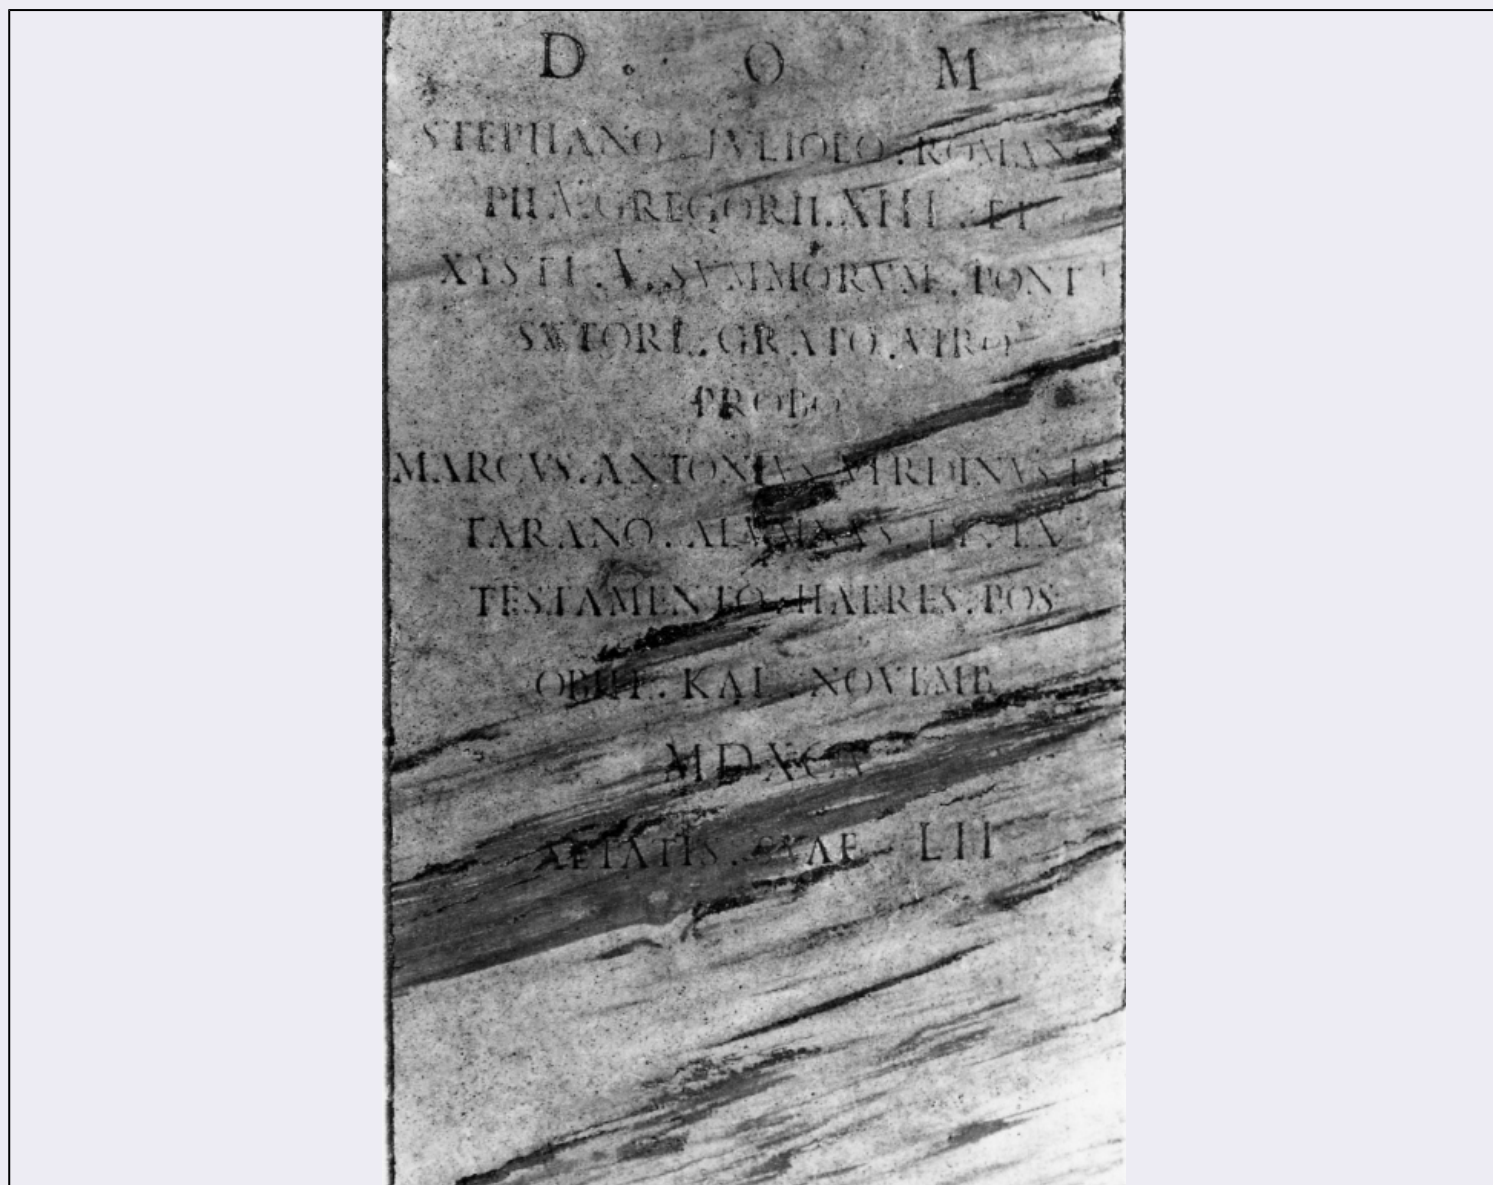 D . O M
STEPHANO IVLIOLO . ROMANO
PII . V . GREGORII . XIII . ET
XYSTI . V . SVMMORVM . PONT
SVTORI . GRATO . VIRO
PROBO
MARCVS . ANTONIVS . VIRDINVS . DE
TARANO . ALVMNVS . ET . EX
TESTAMENTO . HAERES . POS
OBIIT . KAL . NOVEMB
MDXCV
AETATIS . SVAE LII